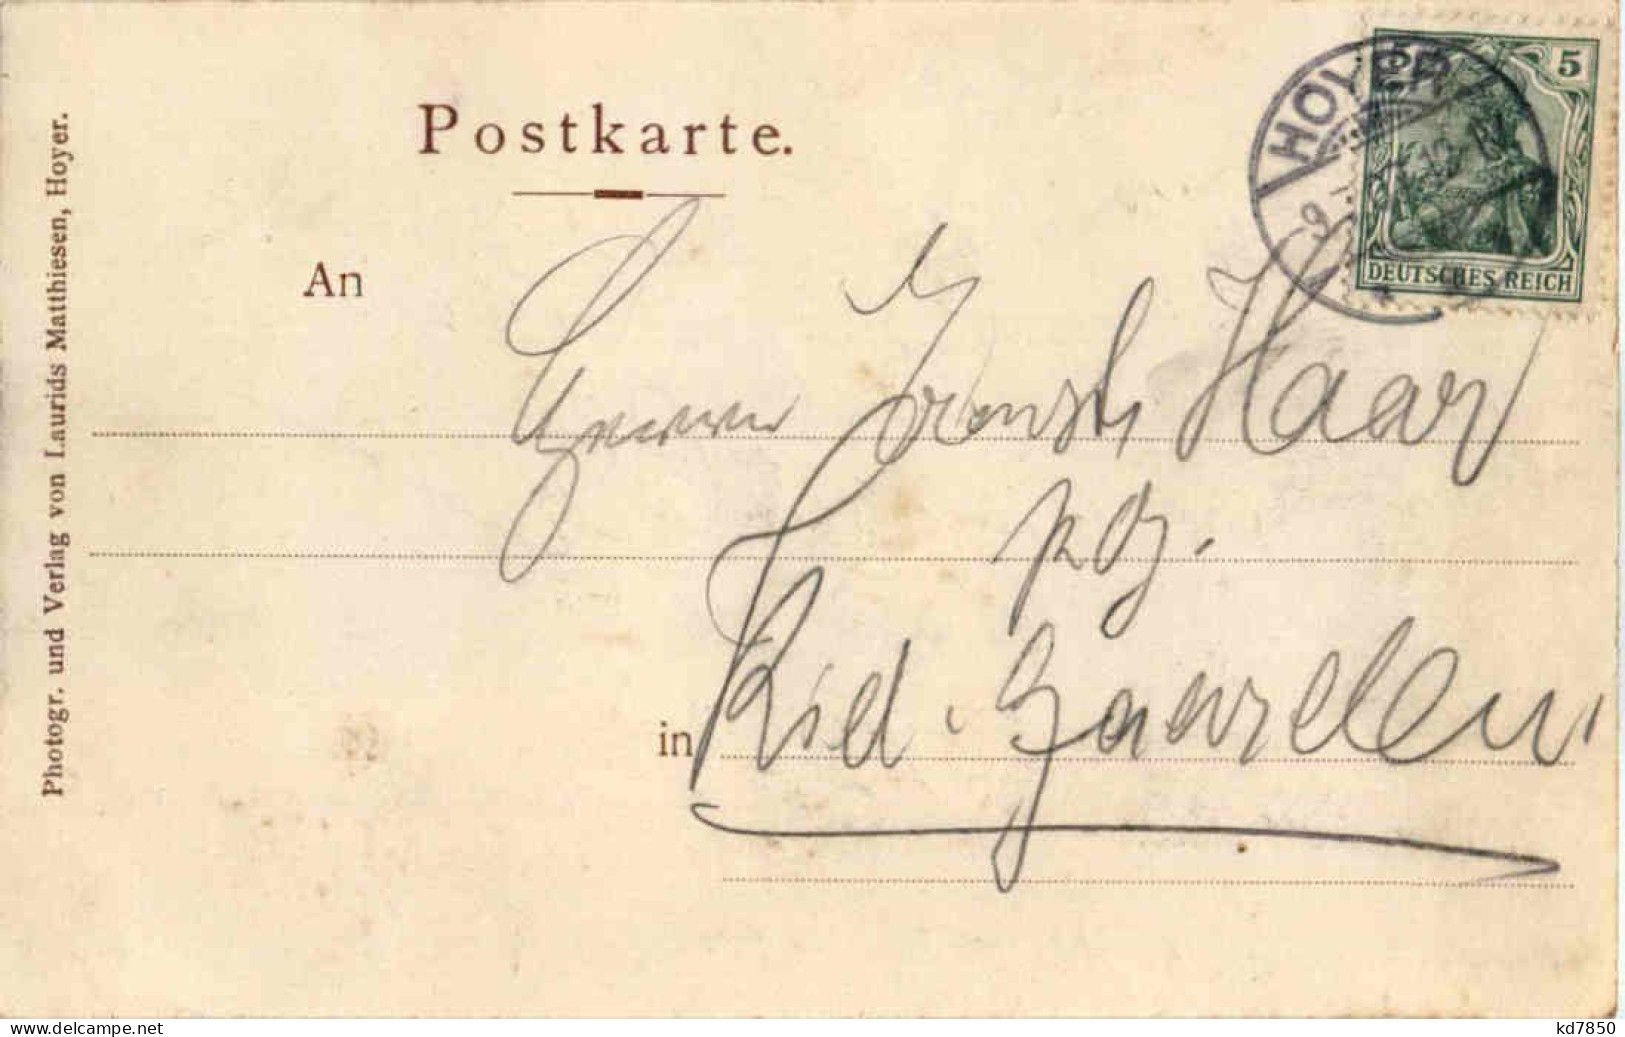 Postkarte.
HOYER
5 5
DEUTSCHES REICH
An
Herrn Haar
in Kiel-Gaarden
Photogr. und Verlag von Laurids Matthiesen, Hoyer.
www.delcampe.net
kd7850